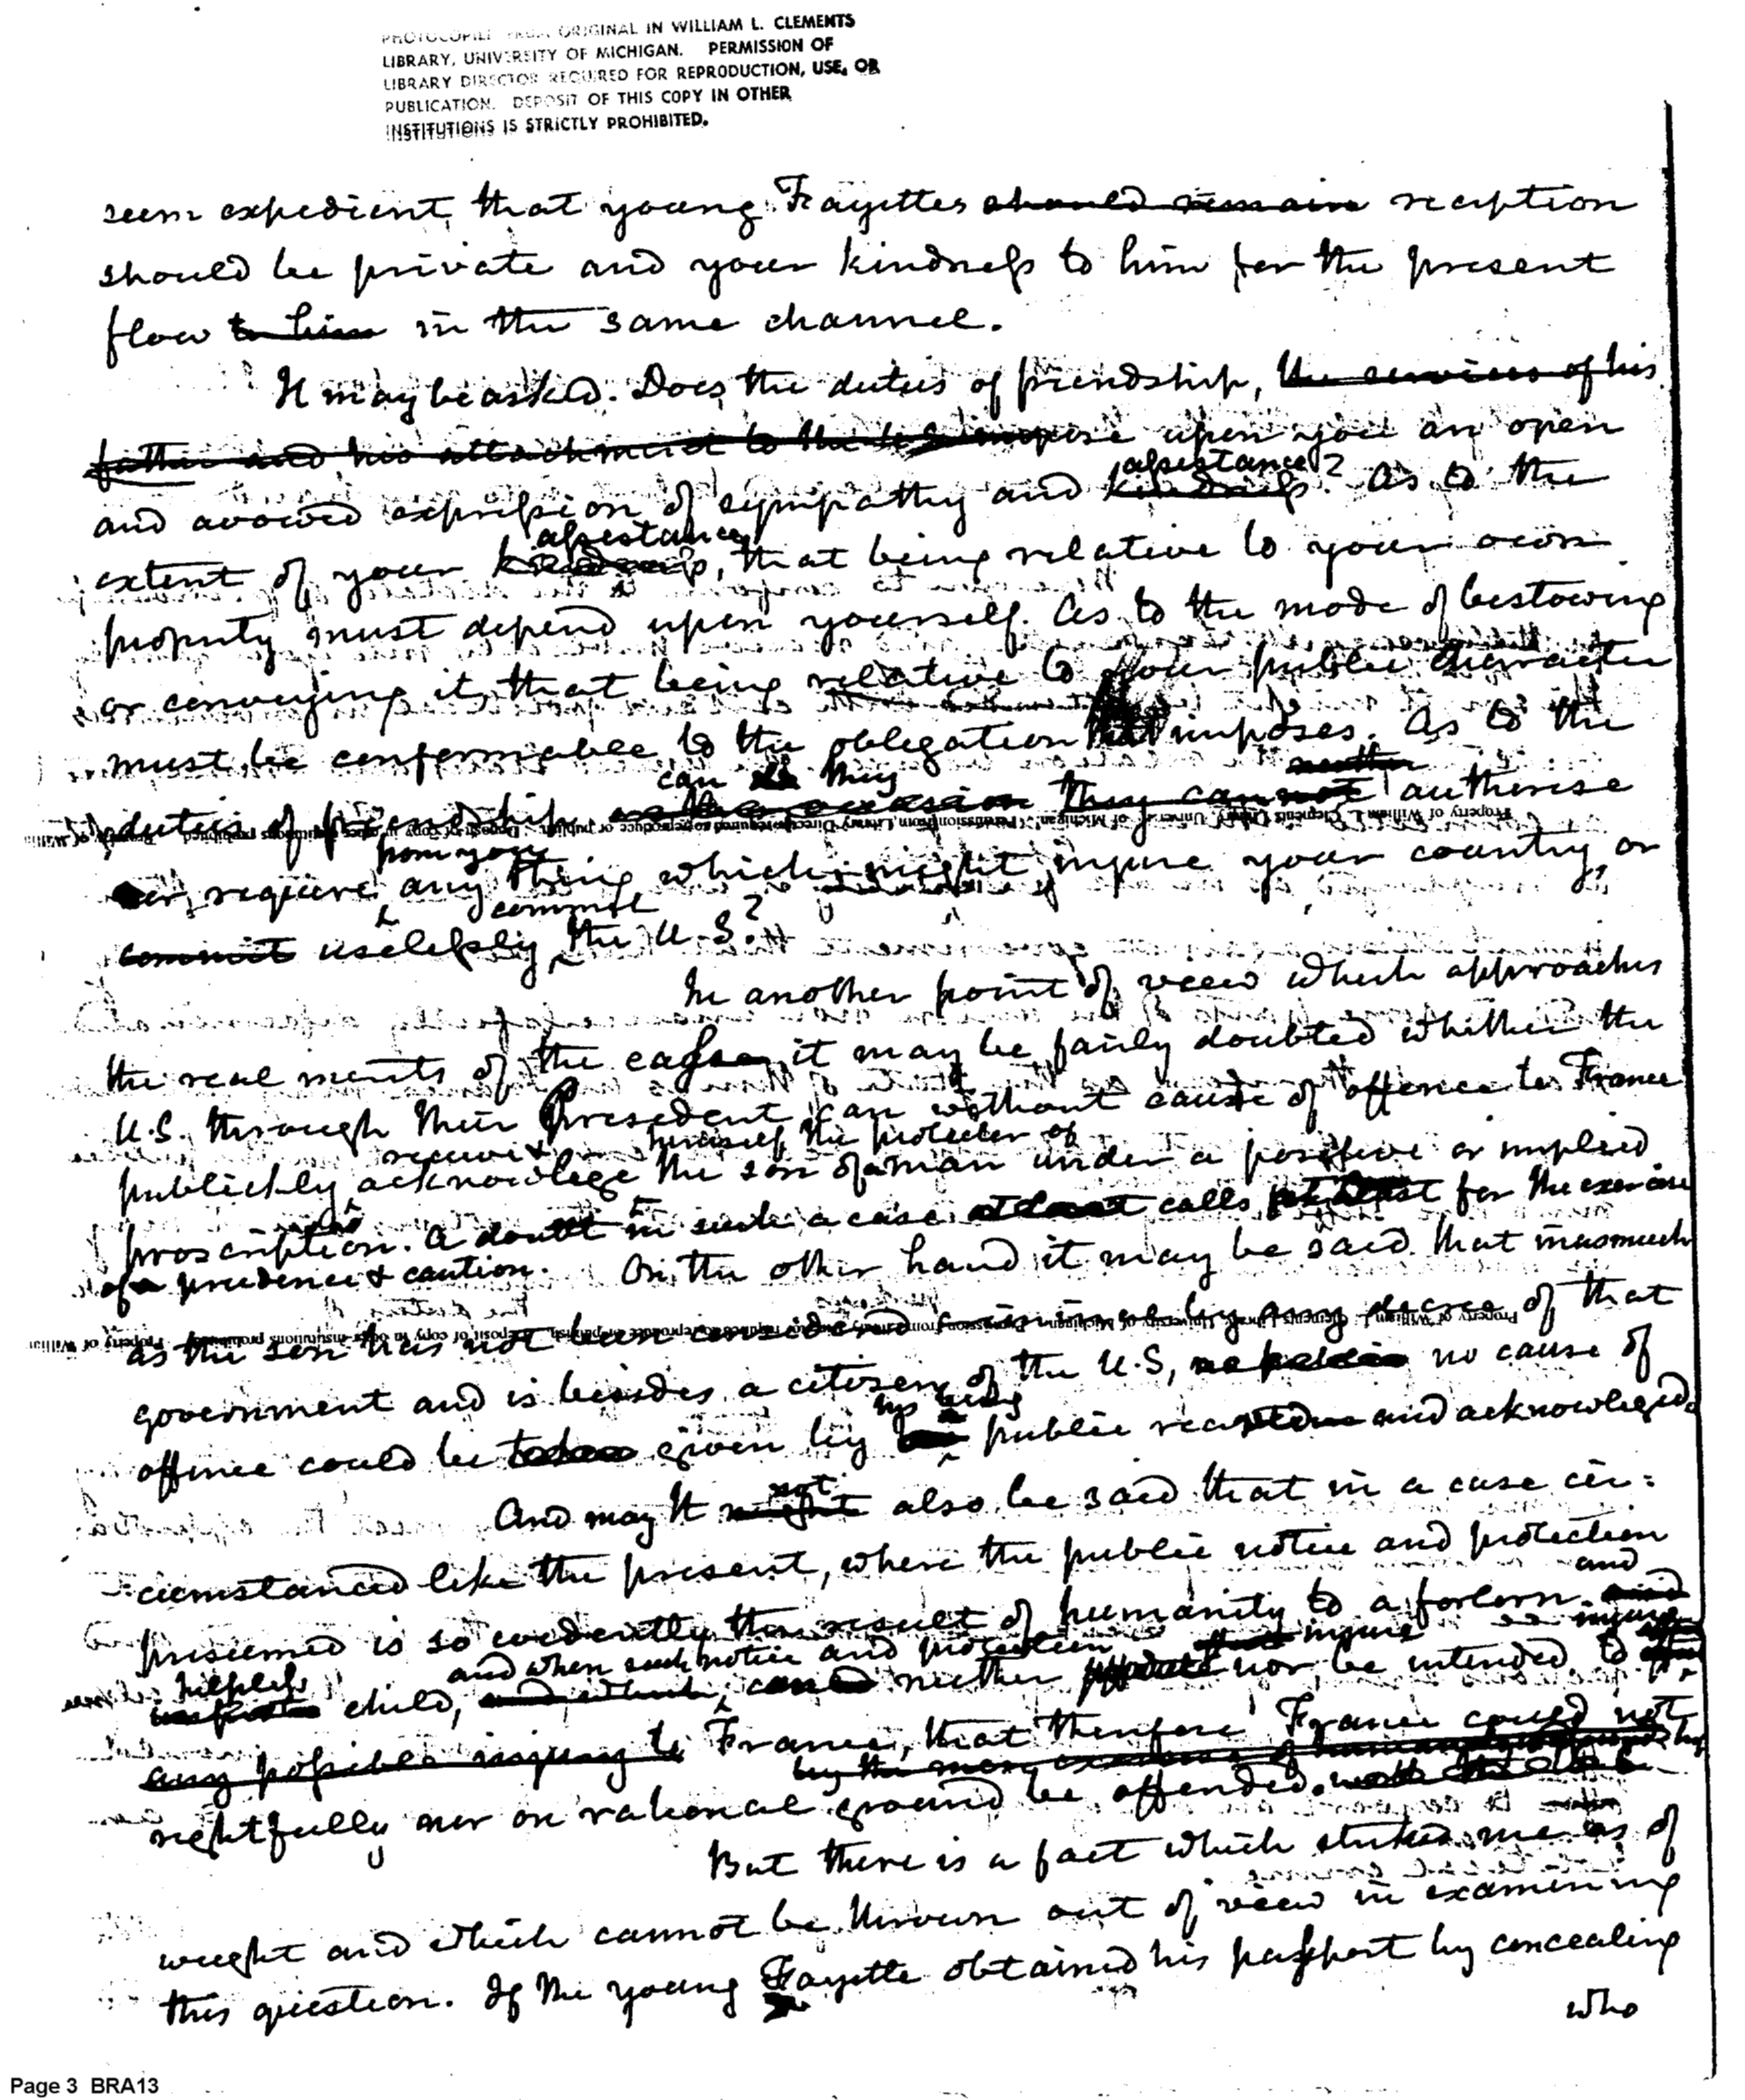 PHOTOCOPIED FROM ORIGINAL IN WILLIAM L. CLEMENTS
LIBRARY, UNIVERSITY OF MICHIGAN. PERMISSION OF
LIBRARY DIRECTOR REQUIRED FOR REPRODUCTION, USE, OR
PUBLICATION. DEPOSIT OF THIS COPY IN OTHER
INSTITUTIONS IS STRICTLY PROHIBITED.
seem expedient, that young Fayettes should remain reception
should be private and your kindness to him for the present
flow to him in the same channel.
It may be asked. Does the duties of friendship, the services of his
father and his attachment to the U.S. impose upon you an open
assistance?
and avowed expression of sympathy and kindness? As to the
assistance
extent of your kindness, that being relative to your own
property must depend upon yourself. As to the mode of bestowing
or conveying it, that being relative to your public character
must be conformable to the obligation that imposes. As to the
can they neither
duties of friendship on this occasion they cannot authorise
from you
or require any thing which might injure your country, or
commit
commit uselessly the U.S.?
In another point of view which approaches
the real merits of the case, it may be fairly doubted whether the
U.S. through their President can without cause of offence to France
receive & himself the protector of
publickly acknowlege the son of a man under a positive or implied
proscription. A doubt in such a case at least calls for the exercise
of prudence & caution. On the other hand it may be said that inasmuch
as the son has not been considered criminal by any decree of that
government and is besides a citizen of the U.S, no cause of
his being
offence could be taken given by public reception and acknowleged.
not
And may It might also be said that in a case cir=
cumstanced like the present, where the public notice and protection
and
presumed is so evidently the result of humanity to a forlorn and
helpless and when such notice and protection injure injure
child, and which, could neither nor be intended to
any possible injury to France, that therefore France could not
by the mere exercise of humanity
rightfully nor on rational ground be offended.
But there is a fact which strikes me as of
weight and which cannot be thrown out of view in examining
this question. If the young Fayette obtained his passport by concealing
who
Page 3 BRA13